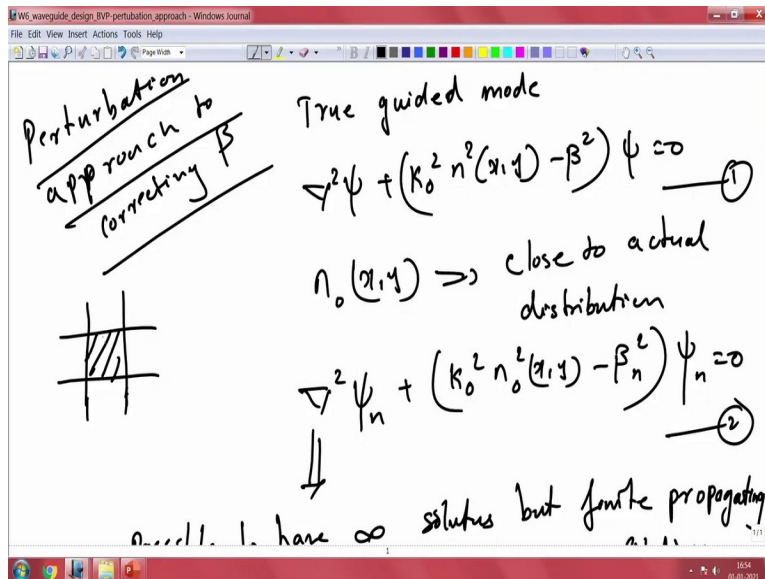 W6_waveguide_design_BVP-pertubation_approach - Windows Journal
File Edit View Insert Actions Tools Help
Page Width
B I
Perturbation
approach to
correcting β
True guided mode
∇²ψ + (K₀² n²(x,y) − β²) ψ = 0 ——— ①
n₀(x,y) => close to actual
distribution
∇²ψₙ + (K₀² n₀²(x,y) − βₙ²) ψₙ = 0
——— ②
have ∞ solutns but finite propagating
1
1/1
16:54
01-01-2021